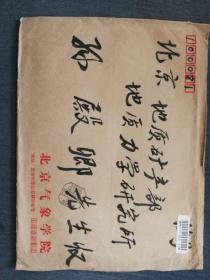 100021
北京 地质矿产部
地质力学研究所
孙殿卿 先生收
北京气象学院